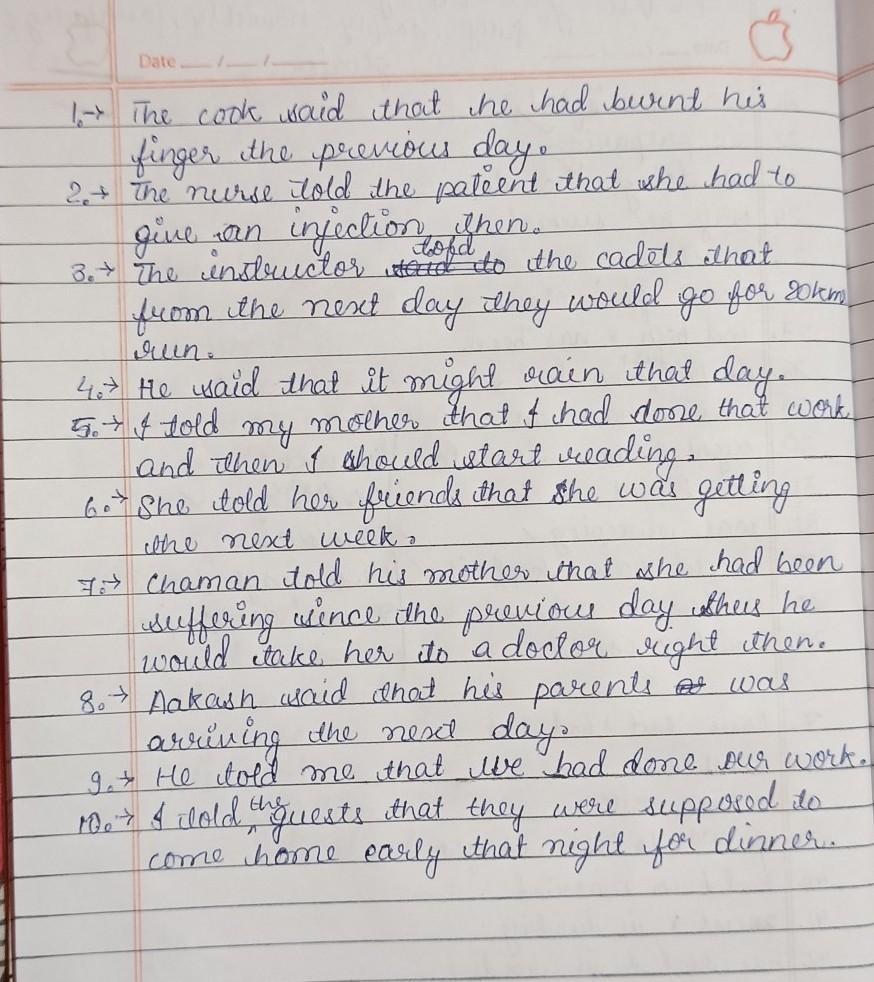 Date __/__/____
1.→ The cook said that he had burnt his
finger the previous day.
2.→ The nurse told the patient that she had to
give an injection then.
3.→ The instructor told the cadets that
from the next day they would go for 20km
run.
4.→ He said that it might rain that day.
5.→ I told my mother that I had done that work
and then I should start reading.
6.→ She told her friends that she was getting
the next week.
7.→ Chaman told his mother that she had been
suffering since the previous day thus he
would take her to a doctor right then.
8.→ Aakash said that his parents was
arriving the next day.
9.→ He told me that we had done our work.
10.→ I told the guests that they were supposed to
come home early that night for dinner.